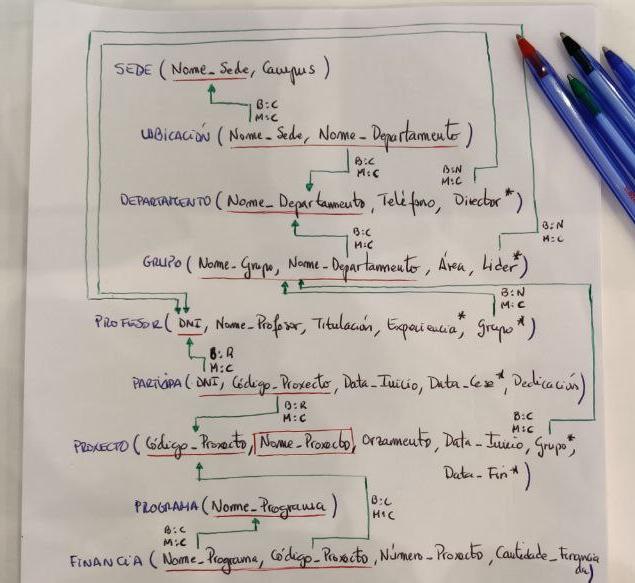 SEDE ( Nome_Sede, Campus )
B:C
M:C
UBICACIÓN ( Nome_Sede, Nome_Departamento )
B:C
M:C
B:N
M:C
DEPARTAMENTO ( Nome_Departamento, Teléfono, Director* )
B:C
M:C
B:N
M:C
GRUPO ( Nome_Grupo, Nome_Departamento, Área, Lider* )
B:N
M:C
PROFESOR ( DNI, Nome_Profesor, Titulación, Experiencia*, Grupo* )
B:R
M:C
PARTICIPA ( DNI, Código_Proxecto, Data_Inicio, Data_Cese*, Dedicación )
B:R
M:C
B:C
M:C
PROXECTO ( Código_Proxecto, Nome_Proxecto, Orzamento, Data_Inicio, Grupo*,
Data_Fin* )
PROGRAMA ( Nome_Programa )
B:C
M:C
B:C
M:C
FINANCIA ( Nome_Programa, Código_Proxecto, Número_Proxecto, Cantidade_Financia
da )